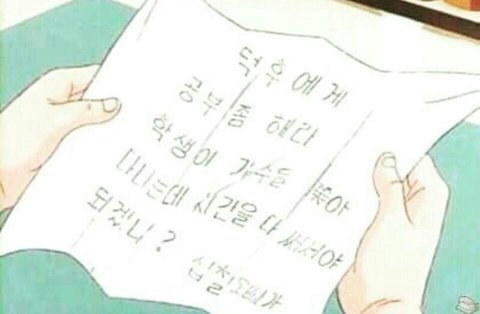 덕후에게
공부 좀 해라
학생이 가수들 쫓아
다니는데 시간을 다 써서야
되겠니?
십칠오빠가